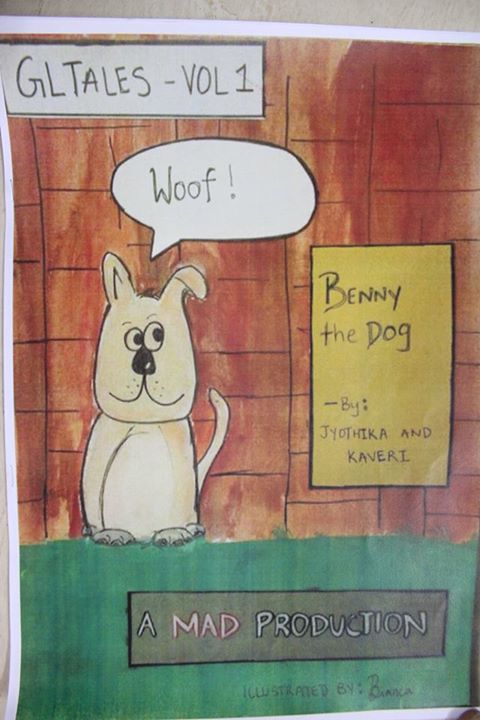 GLTALES - VOL 1
Woof!
BENNY
the Dog
- By:
JYOTHIKA AND
KAVERI
A MAD PRODUCTION
ILLUSTRATED BY: Bianca